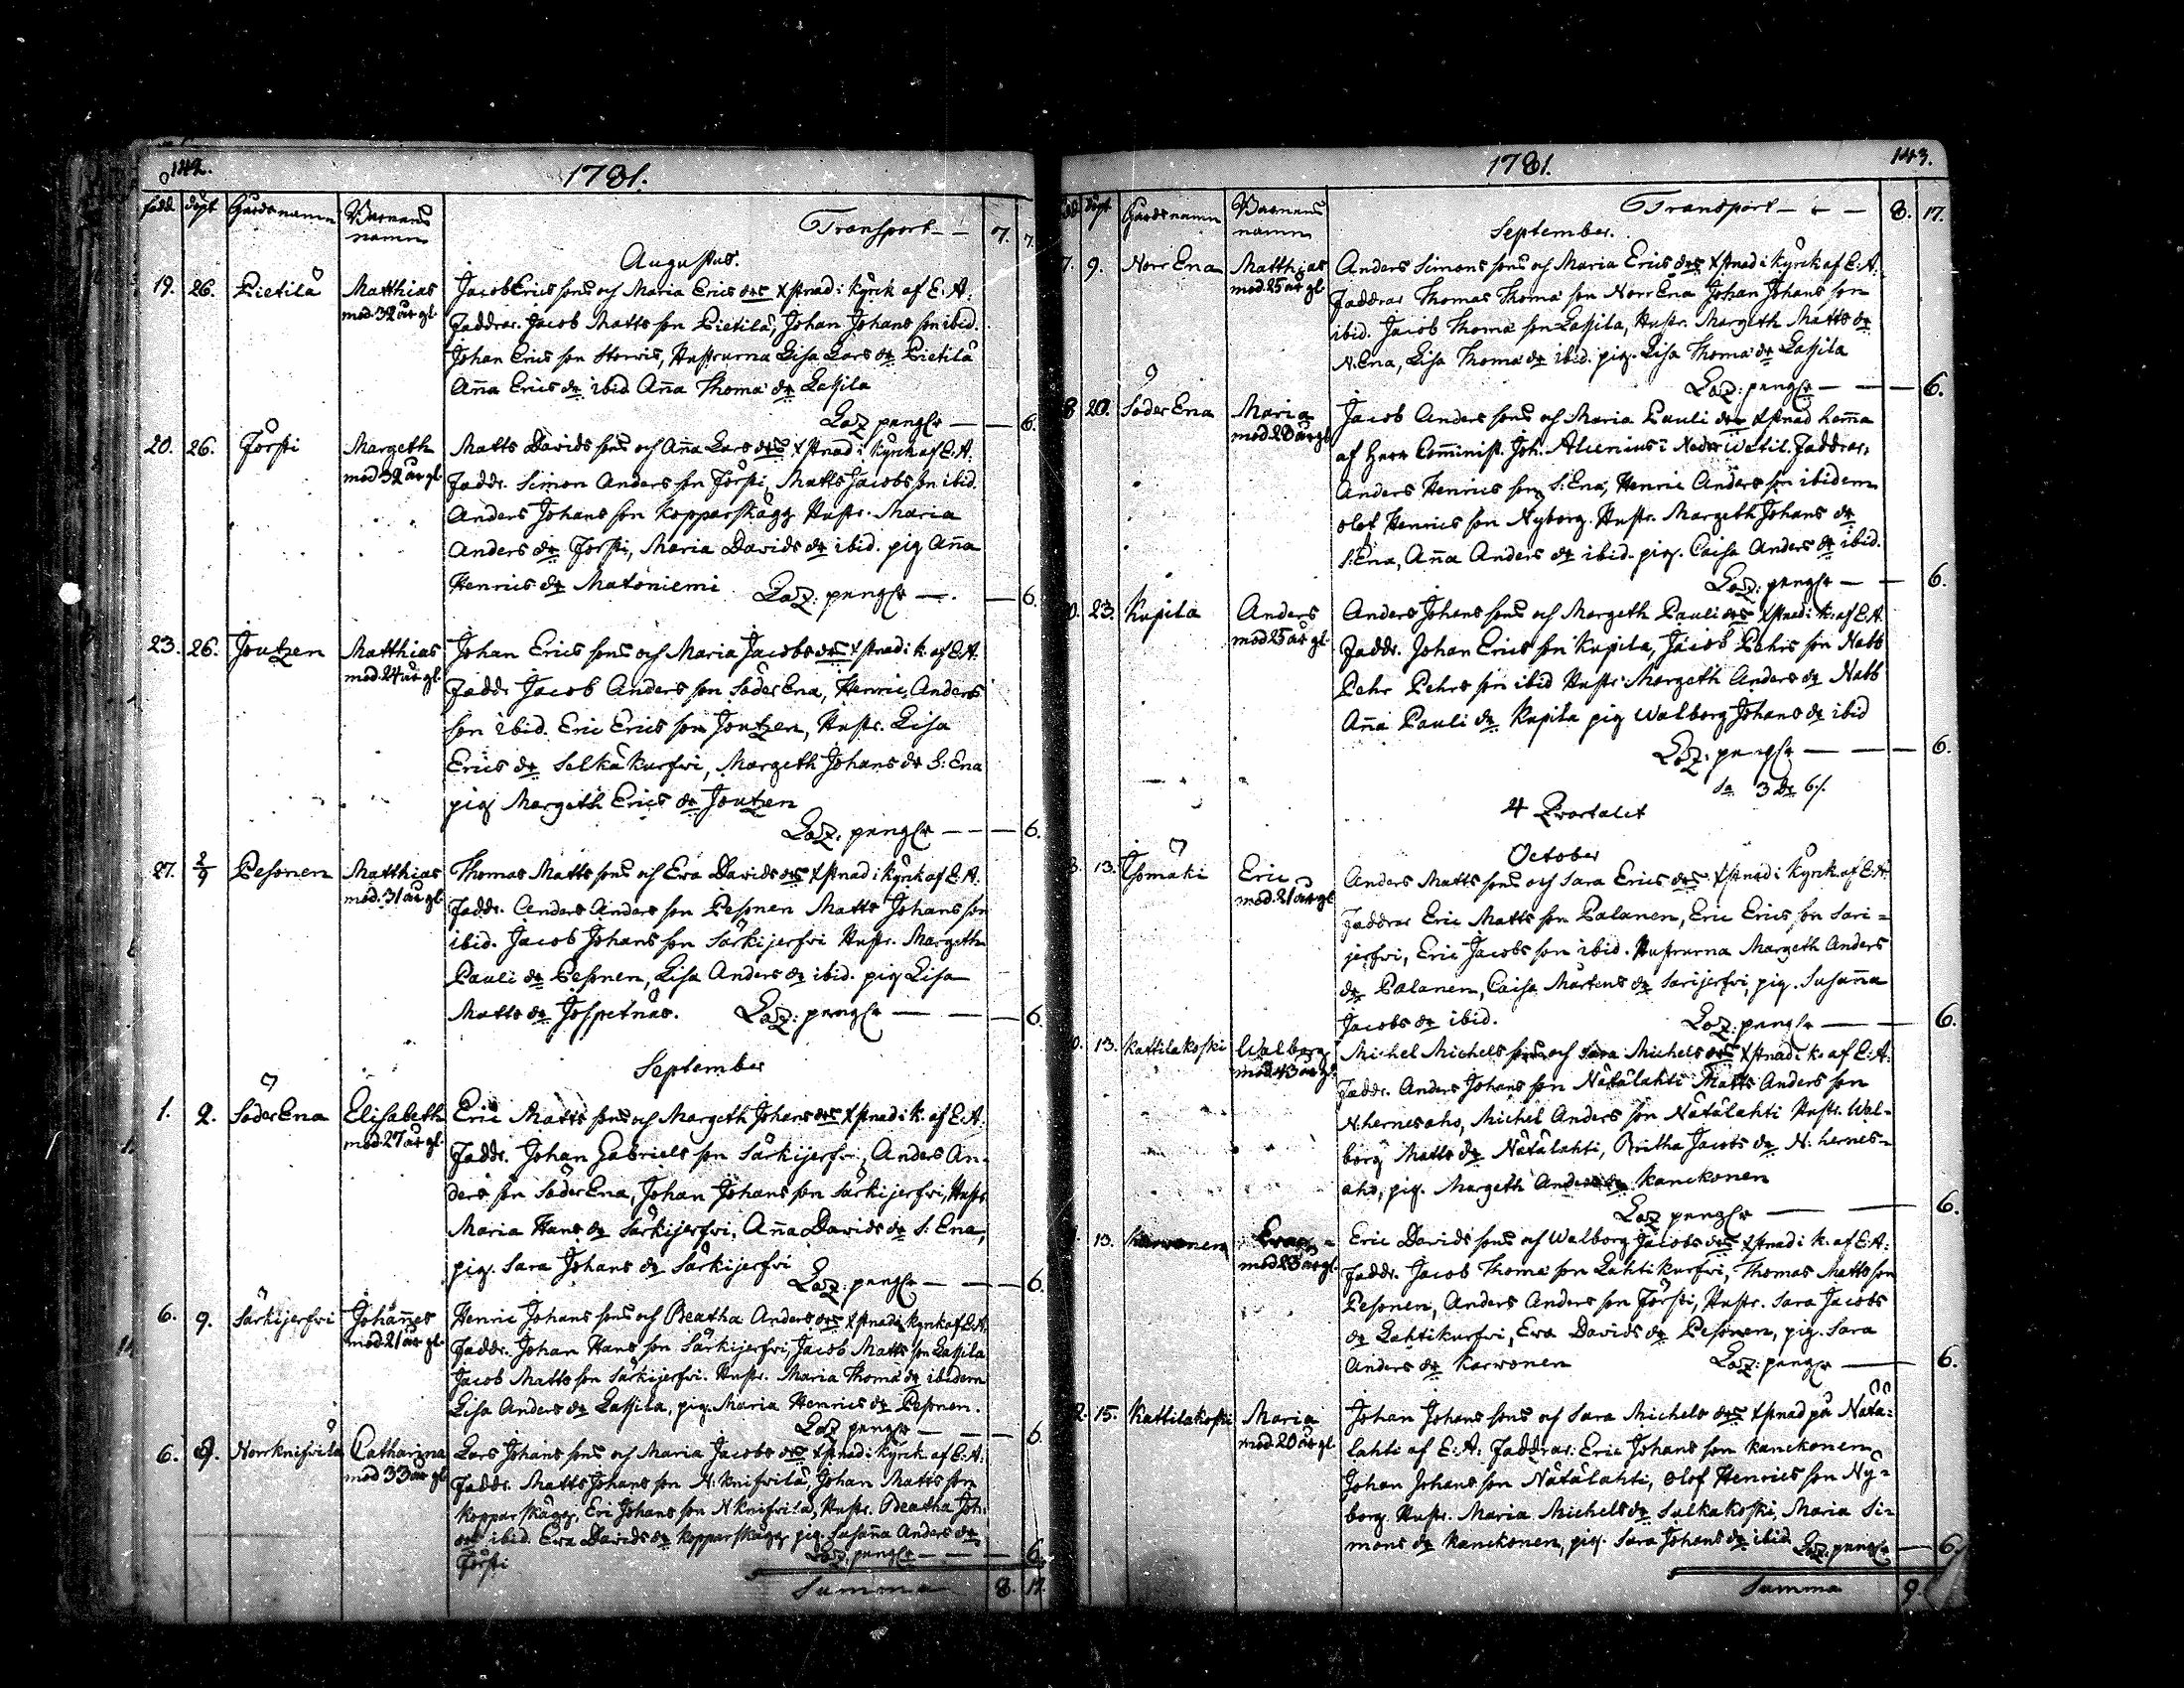 142.
1781.
född döpt Gårdsnamn Barnens namn Transport - - 7. 7.
Augustus.
19. 26. Pietilä Matthias Jacob Erics sons och Maria Erics drs Xstnad i kyrk af E: A:
mod 32 år gl. Faddrar. Jacob Matts son Pietilä, Johan Johans son ibid.
Johan Erics son Storvis, Hustrurna Lisa Lars dr Pietilä
Aña Erics dr ibid Aña Thomæ dr Lassila
Laz penglr — — 6.
20. 26. Förssi Margeth Matts Davids sons och Aña Lars drs Xstnad i kyrk af E: A.
mod 32 år gl. Faddr. Simon Anders son Förssi, Matts Jacobs son ibid.
Anders Johans son Kopparskägg Hustr. Maria
Anders dr Förssi, Maria Davids dr ibid. pig Aña
Henrics dr Matoniemi Laz: penglr — — 6.
23. 26. Joutzen Matthias Johan Erics sons och Maria Jacobs drs Xstnad i k. af E: A.
mod 24 år gl. Faddr Jacob Anders son SöderEna, Henric Anders
son ibid. Eric Erics son Joutzen, Hustr. Lisa
Erics dr Selkäkurfwi, Margeth Johans dr S: Ena
pig Margeth Erics dr Joutzen
Laz: penglr — — 6.
27. 2/9 Pesonen Matthias Thomas Matts sons och Ewa Davids drs Xstnad i kyrk af E: A.
mod. 31 år gl. Faddr. Anders Anders son Pesonen Matts Johans son
ibid. Jacob Johans son Särkijerfwi Hustr. Margeth
Pauli dr Pesonen, Lisa Anders dr ibid. pig Lisa
Matts dr Jospetnäs. Laz: penglr — — 6.
September
1. 2. SöderEna Elisabeth Eric Matts sons och Margeth Johans drs Xstnad i k. af E: A.
mod. 27 år gl. Faddr. Johan Gabriels son Särkijerfwi, Anders An-
ders son SöderEna, Johan Johans son Särkijerfwi, Hustr.
Maria Hans dr Särkijerfwi, Aña Davids dr S: Ena,
pig. Sara Johans dr Särkijerfwi Laz: penglr — — 6.
6. 9. Särkijerfwi Johañes Henric Johans sons och Beatha Anders drs Xstnad i kyrk af E: A.
mod 21 år gl. Faddr. Johan Hans son Särkijerfwi, Jacob Matts son Lassila
Jacob Matts son Särkijerfwi. Hustr. Maria Thomæ dr ibidem
Lisa Anders dr Lassila, pig. Maria Henrics dr Pesonen.
Laz penglr — — 6.
6. 9. Norrknifwilä Catharina Lars Johans sons och Maria Jacobs drs Xstnad i kyrk. af E: A:
mod 33 år gl Faddr. Matts Johans son N: knifwilä, Johan Matts son
Kopparskägg, Eri Johans son N knifwilä, Hustr. Beatha Joh.
dr ibid. Ewa Davids dr Kopparskägg pig. Susaña Anders dr
Förssi Laz: penglr — — 6.
Summa 8. 17.
143.
1781.
döpt Gårdsnamn Barnens namn Transport - - - 8. 17.
September.
7. 9. NorrEna Matthias Anders Simons sons och Maria Erics drs Xstnad i kyrk af E: A.
mod. 25 år gl Faddrar Thomas Thomæ son NorrEna Johan Johans son
ibid. Jacob Thomæ son Lassila, Hustr. Margeth Matts dr
N. Ena, Lisa Thomæ dr ibid. pig. Lisa Thomæ dr Lassila
Laz: penglr — — 6.
8 20. SöderEna Maria Jacob Anders sons och Maria Pauli drs Xstnad hema
mod 28 år gl af Herr Comminist. Joh. Alcenius i Neder Wetil. Faddrar.
Anders Henrics son S: Ena, Henric Anders son ibidem
Olof Henrics son Nyborg. Hustr. Margeth Johans dr
S: Ena, Aña Anders dr ibid. pig. Caisa Anders dr ibid.
Laz: penglr — — 6.
0. 23. Kupila Anders Anders Johans sons och Margeth Pauli drs Xstnad i k. af E: A.
mod 25 år gl. Faddr. Johan Erics son Kupila, Jacob Pehrs son Nabb
Pehr Pehrs son ibid Hustr. Margeth Anders dr Nabb
Aña Pauli dr Kupila pig Walborg Johans dr ibid
Laz: penglr — — 6.
Sa 3 dr 6 /.
4 Qvartalet
October
3. 13. Isomäki Eric Anders Matts sons och Sara Erics drs Xstnad i kyrk. af E: A.
mod. 21 år gl Faddrar Eric Matts son Palanen, Eric Erics son Sari-
jerfwi, Eric Jacobs son ibid. Hustrurna Margeth Anders
dr Palanen, Caisa Mårtens dr Sarijerfwi, pig. Susaña
Jacobs dr ibid. Laz: penglr — — 6.
0. 13. Kattilakoski Walborg Michel Michels sons och Sara Michels drs Xstnad i k. af E: A:
mod 43 år gl. Faddr. Anders Johans son Näätälahti Matts Anders son
N:hernesaho, Michel Anders son Näätälahti Hustr. Wal-
borg Matts dr Näätälahti, Britha Jacobs dr N: hernes-
aho, pig. Margeth Anders dr Kanckonen
Laz penglr — — 6.
13. Karwonen Ewa Eric Davids sons och Walborg Jacobs drs Xstnad i k. af E: A:
mod 23 år gl. Faddr. Jacob Thomæ son Lahtikurfwi, Thomas Matts son
Pesonen, Anders Anders son Förssi, Hustr. Sara Jacobs
dr Lahtikurfwi, Ewa Davids dr Pesonen, pig. Sara
Anders dr Karwonen Laz: penglr — 6.
2. 15. Kattilakoski Maria Johan Johans sons och Sara Michels drs Xstnad på Nätä-
mod. 20 år gl. lahti af E: A: Faddrar: Eric Johans son Kanckonen
Johan Johans son Nätälahti, Olof Henrics son Ny-
borg. Hustr. Maria Michels dr Salkakoski, Maria Si-
mons dr Kanckonen, pig. Sara Johans dr ibid Laz: penglr — 6.
Summa 9.